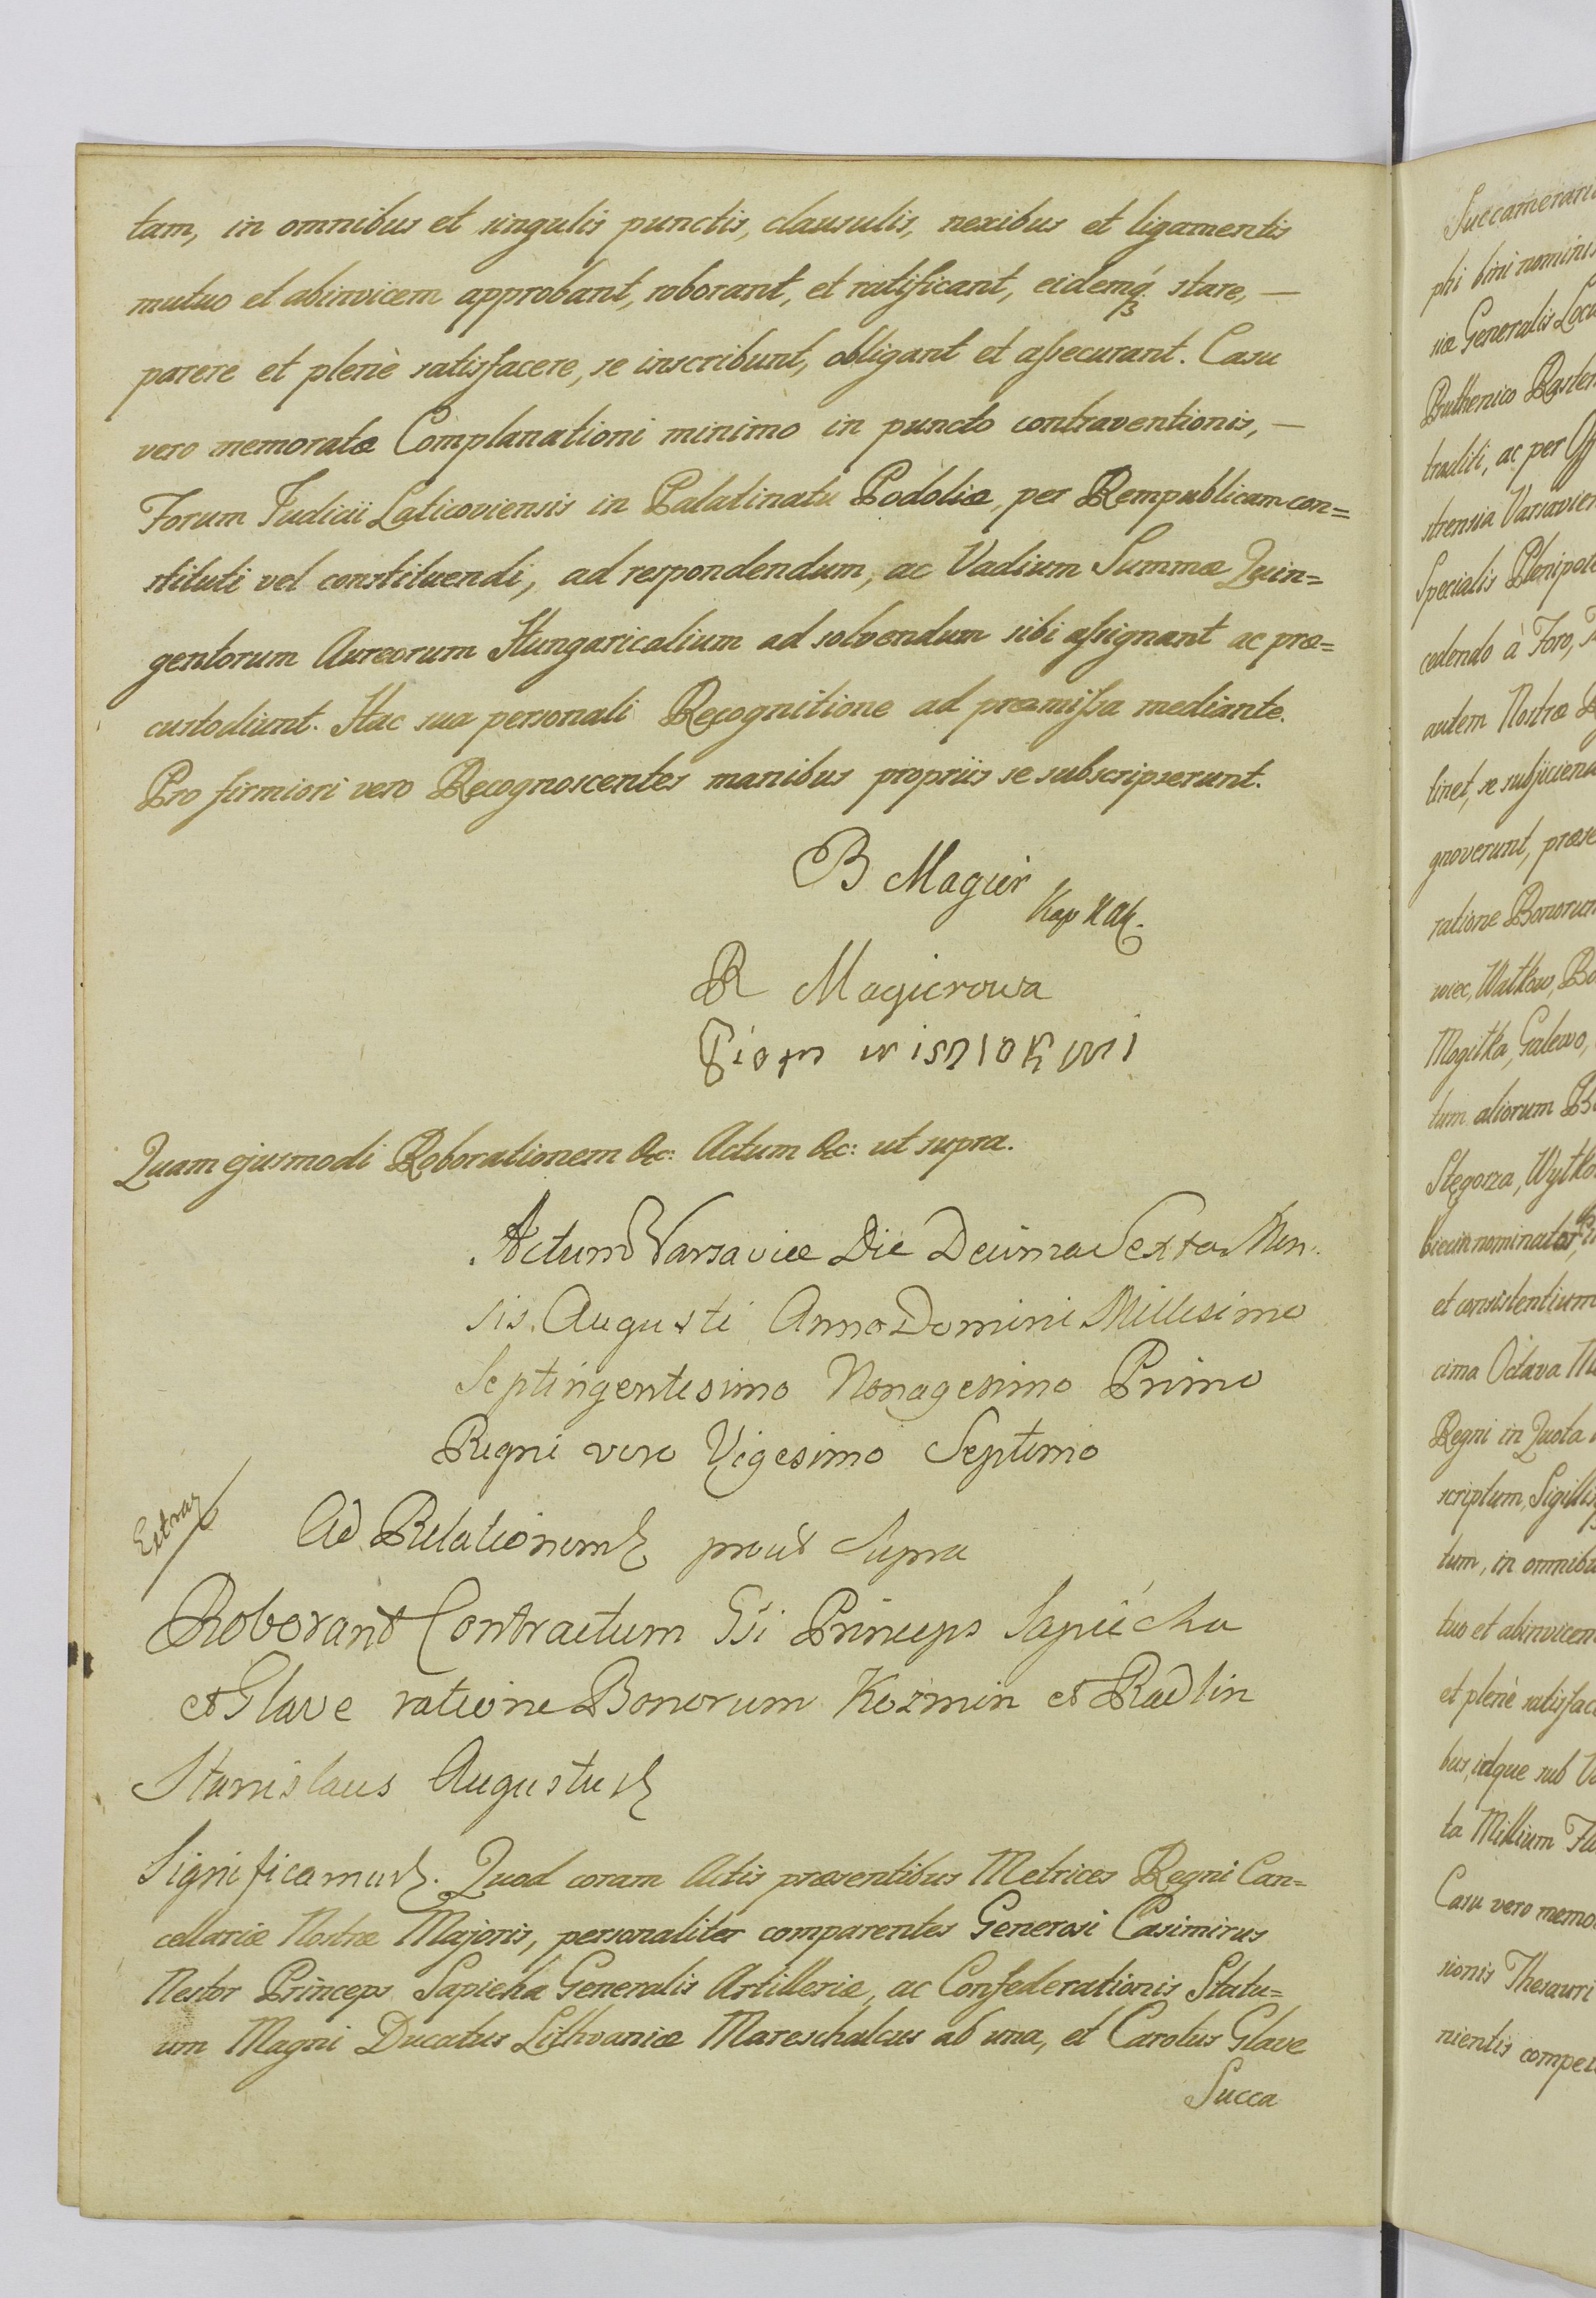 tam, in omnibus et singulis punctis, clausulis, nexibus et ligamentis
mutuo et abinvicem approbant, roborant, et ratificant, eidemq́ꝫ stare, —
parere et plenè satisfacere, se inscribunt, obligant et aſsecurant. Casu
vero memoratæ Complanationi minimo in puncto contraventionis, —
Forum Judicii Laticoviensis in Palatinatu Podoliæ, per Rempublicam con=
stituti vel constituendi, ad respondendum, ac Vadium Summæ Quin=
gentorum Aureorum Hungaricalium ad solvendum sibi aſsignant ac præ=
custodiunt. Hac sua personali Recognitione ad præmiſsa mediante.
Pro firmiori vero Recognoscentes manibus propriis se subscripserunt.
B Magier
Kap
R Magierowa
Quam ejusmodi Roborationem &c: Actum &c: ut supra.
Actum Varsaviæ Die Decima Sexta Men
sis Augusti Anno Domini Millesimo
Septingentesimo Nonagesimo Primo
Regni vero Vigesimo Septimo
Ad Relationem prout Supra
Roborant Contractum Gsi Princeps Sapiécha
et Glave ratione Bonorum Kozmin et Radlin
Stanislaus Augustus
Significamus. Quod coram Actis præsentibus Metrices Regni Can=
cellariæ Nostræ Majoris, personaliter comparentes Generosi Casimirus
Nestor Princeps Sapieha Generalis Artilleriæ, ac Confederationis Statu=
um Magni Ducatus Lithvaniæ Mareschalcus ab una, et Carolus Glave
Succa
Succamerari
phi bini nominis
siæ Generalis Locu
Ruthenico
traditi, ac per Off
strensia Varsavien
Specialis Plenipote
cedendo à Foro,
autem Nostræ
tinet, se subjiciend
gnoverunt, præse
ratione Bonorum
wiec, Watkow, Bo
Mogiłka, Galewo,
tum aliorum B
Stęgosza, Wytko
et consistentium
cima Octava
Regni in Quota
scriptum, Sigillis
tum, in omnibu
tuo et abinvicem
et plenè satisfac
bus, idque sub Va
ta Millium Flo
Casu vero memo
sionis Thesauri
nientis compet